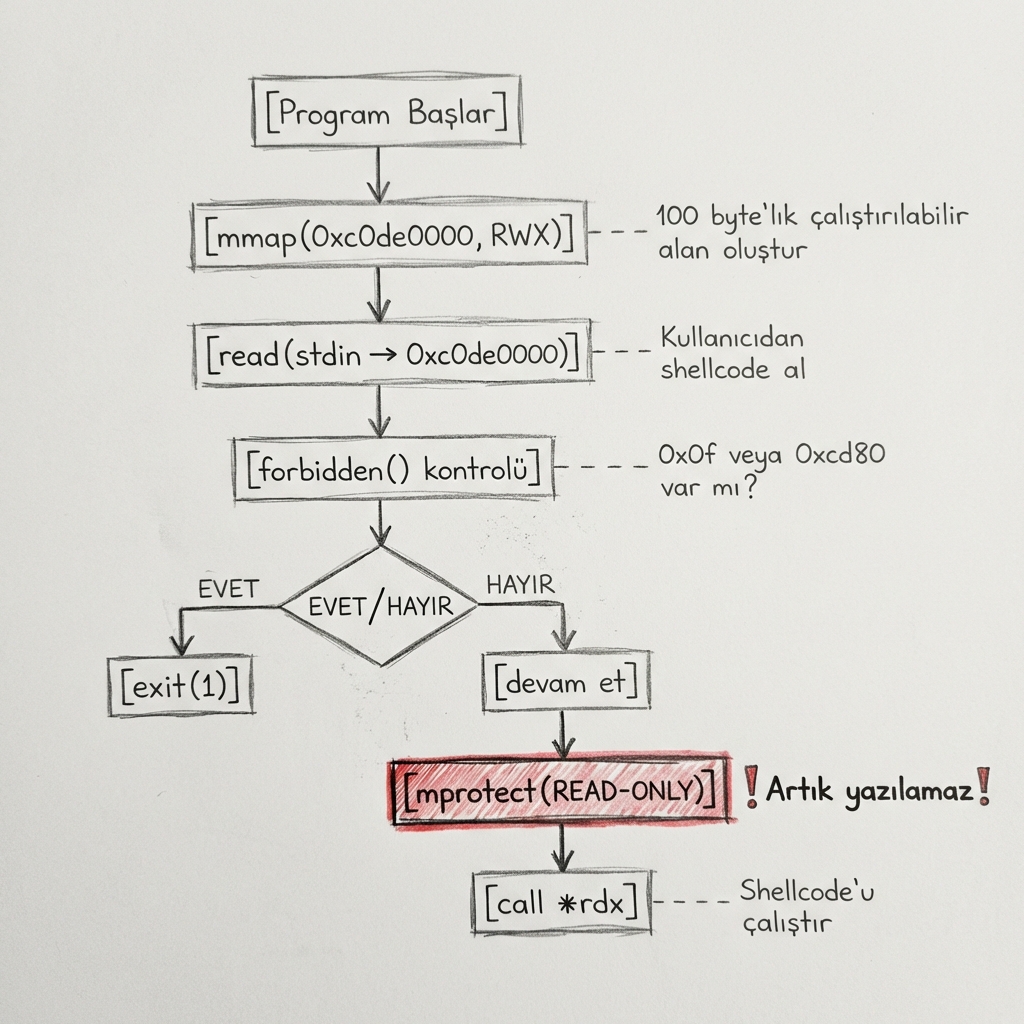 [Program Başlar]
[mmap(0xc0de0000, RWX)]
100 byte'lık çalıştırılabilir
alan oluştur
[read(stdin → 0xc0de0000)]
Kullanıcıdan
shellcode al
[forbidden() kontrolü]
0x0f veya 0xcd80
var mı?
EVET
EVET/HAYIR
HAYIR
[exit(1)]
[devam et]
[mprotect(READ-ONLY)]
❗Artık yazılamaz❗
[call *rdx]
Shellcode'u
çalıştır